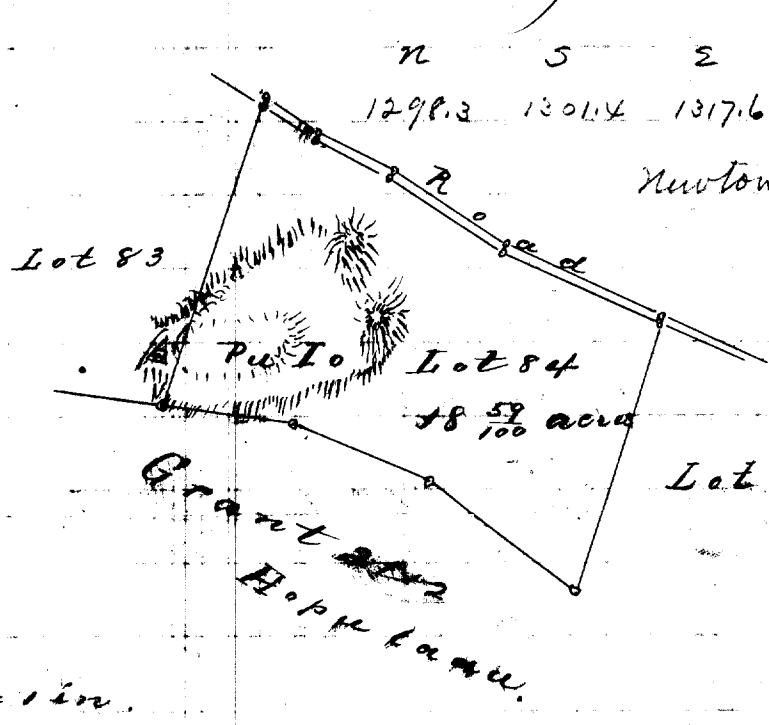 N S E
1298.3 1301.4 1317.6
Newton
Road
Lot 83
Pu Io
Lot 84
18 59/100 acres
Lot
Grant